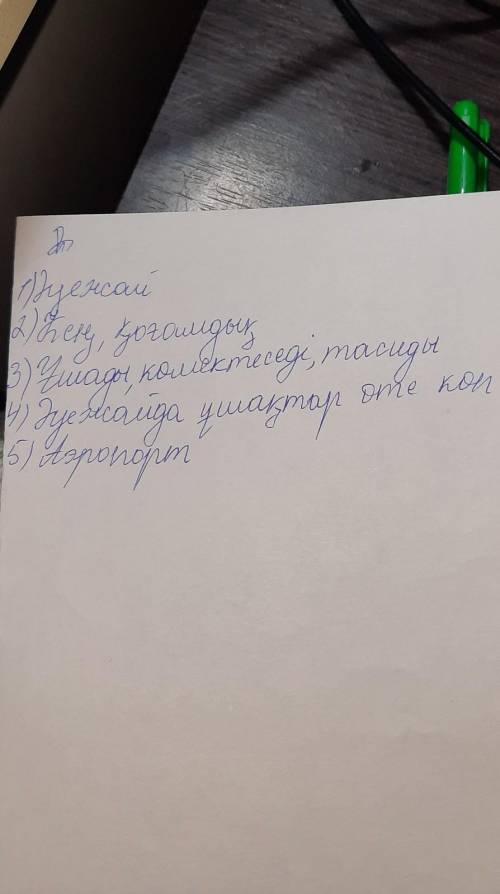 1) Әуежай
2) Кең, қоғамдық
3) Ұшады, көмектеседі, тасиды
4) Әуежайда ұшақтар өте көп
5) Аэропорт